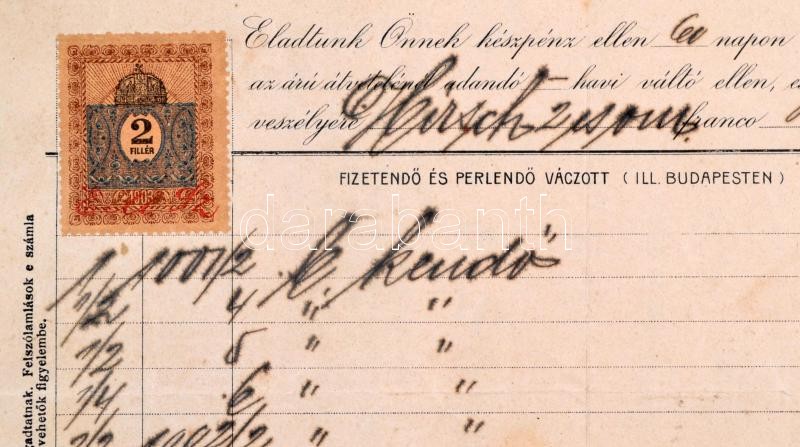 Eladtunk Önnek készpénz ellen 60 napon
az árú átvételénél adandó havi váltó ellen,
veszélyére Hirsch 2 csom. franco
2
FILLÉR
1903
FIZETENDŐ ÉS PERLENDŐ VÁCZOTT ( ILL. BUDAPESTEN )
darabanth
1 1001/2 kendő
1/2 4 " "
1/2 5 " "
1/4 6 " "
1002/2 " "
adtatnak. Felszólamlások e számla
vehetők figyelembe.